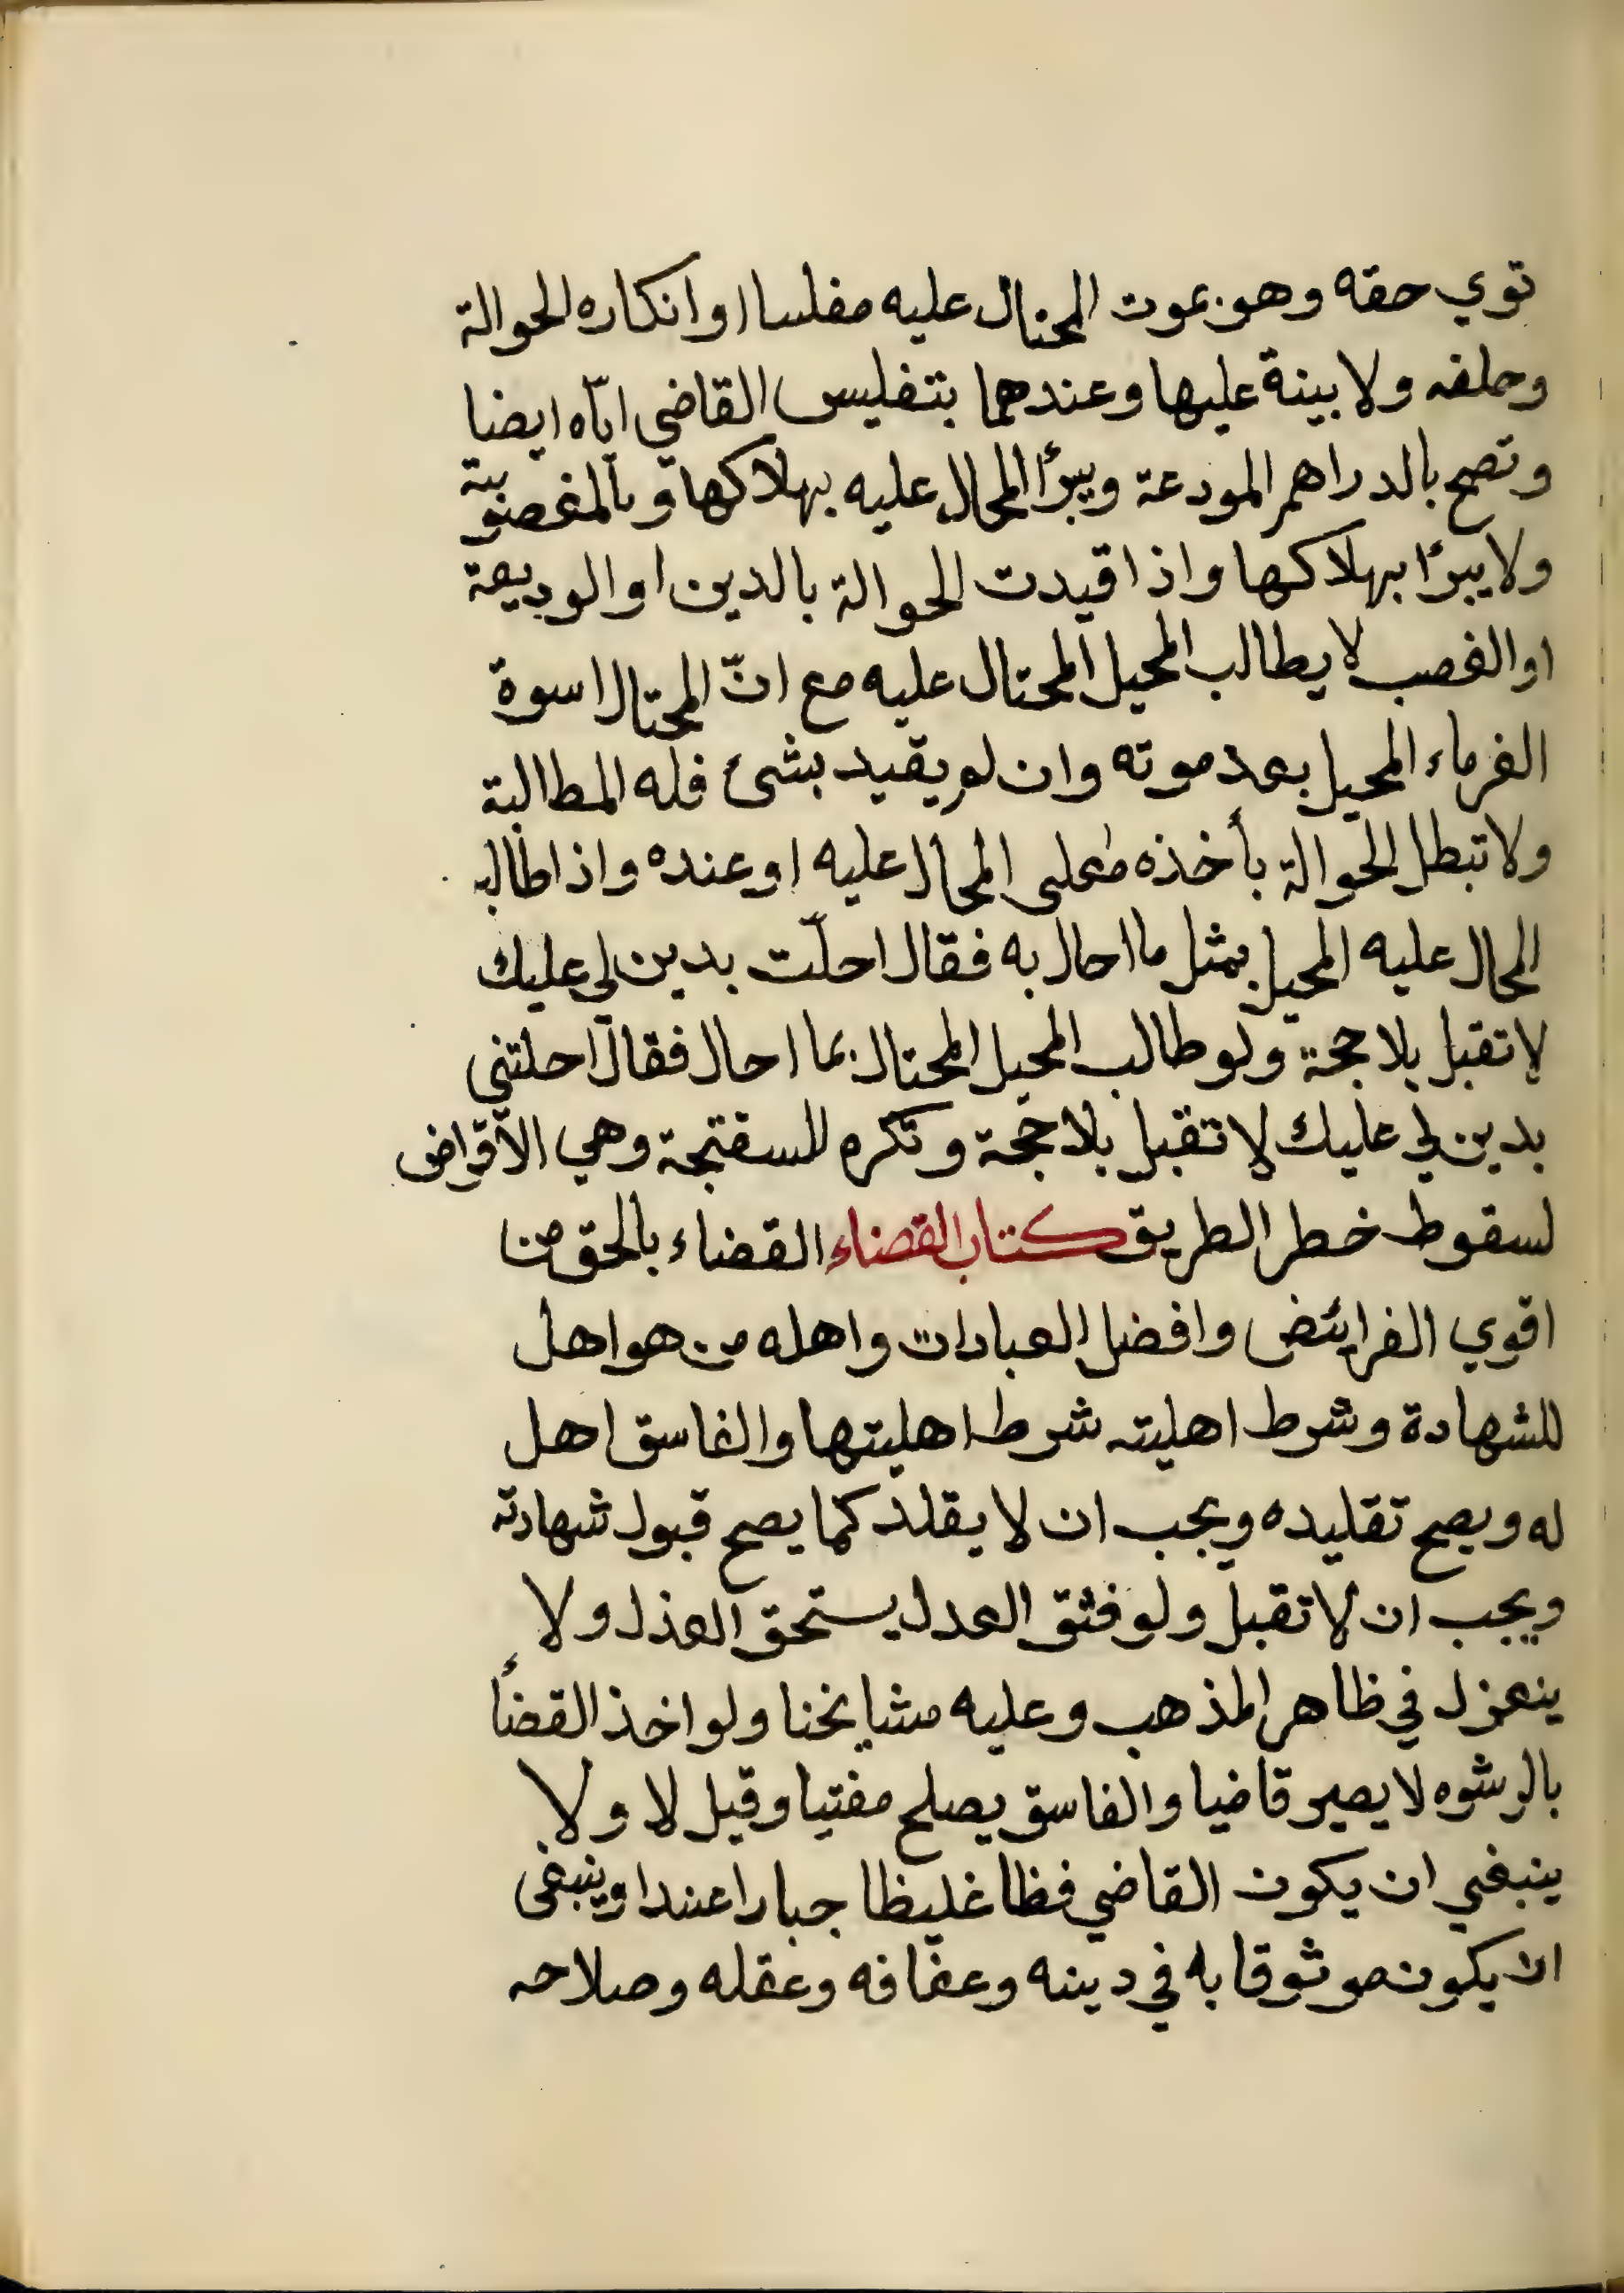 توي حقه وهو بموت المحتال عليه مفلسا او انكاره الحوالة
وحلفه ولا بينة عليها وعندهما بتفليس القاضي اياه ايضا
وتصح بالدراهم المودعة ويبرأ المحال عليه بهلاكها وبالمغصوبة
ولا يبرأ بهلاكها واذا قيدت الحوالة بالدين او الوديعة
او الغصب لا يطالب المحيل المحتال عليه مع انّ المحتال اسوة
الغرماء المحيل بعد موته وان لم يقيد بشئ فله المطالبة
ولا تبطل الحوالة بأخذه ما على المحال عليه او عنده واذا طالبه
المحال عليه المحيل بمثل ما احال به فقال احلّت بدين لي عليك
لا تقبل بلا حجة ولو طالب المحيل المحتال بما احال فقال احلتني
بدين لي عليك لا تقبل بلا حجة وتكره للسفتجة وهي الاقراض
لسقوط خطر الطريق كتاب القضاء القضاء بالحق من
اقوي الفرايئض وافضل العبادات واهله من هو اهل
للشهادة وشرط اهليته شرط اهليتها والفاسق اهل
له ويصح تقليده ويجب ان لا يقلد كما يصح قبول شهادته
ويجب ان لا تقبل ولو فثق العدل يستحق العذل ولا
ينعزل في ظاهر المذهب وعليه مشايخنا ولو اخذ القضأ
بالرشوه لا يصير قاضيا والفاسق يصلح مفتيا وقيل لا ولا
ينبغي ان يكون القاضي فظا غليظا جبارا عندا وينبغى
ان يكون موثوقا به في دينه وعفافه وعقله وصلاحه